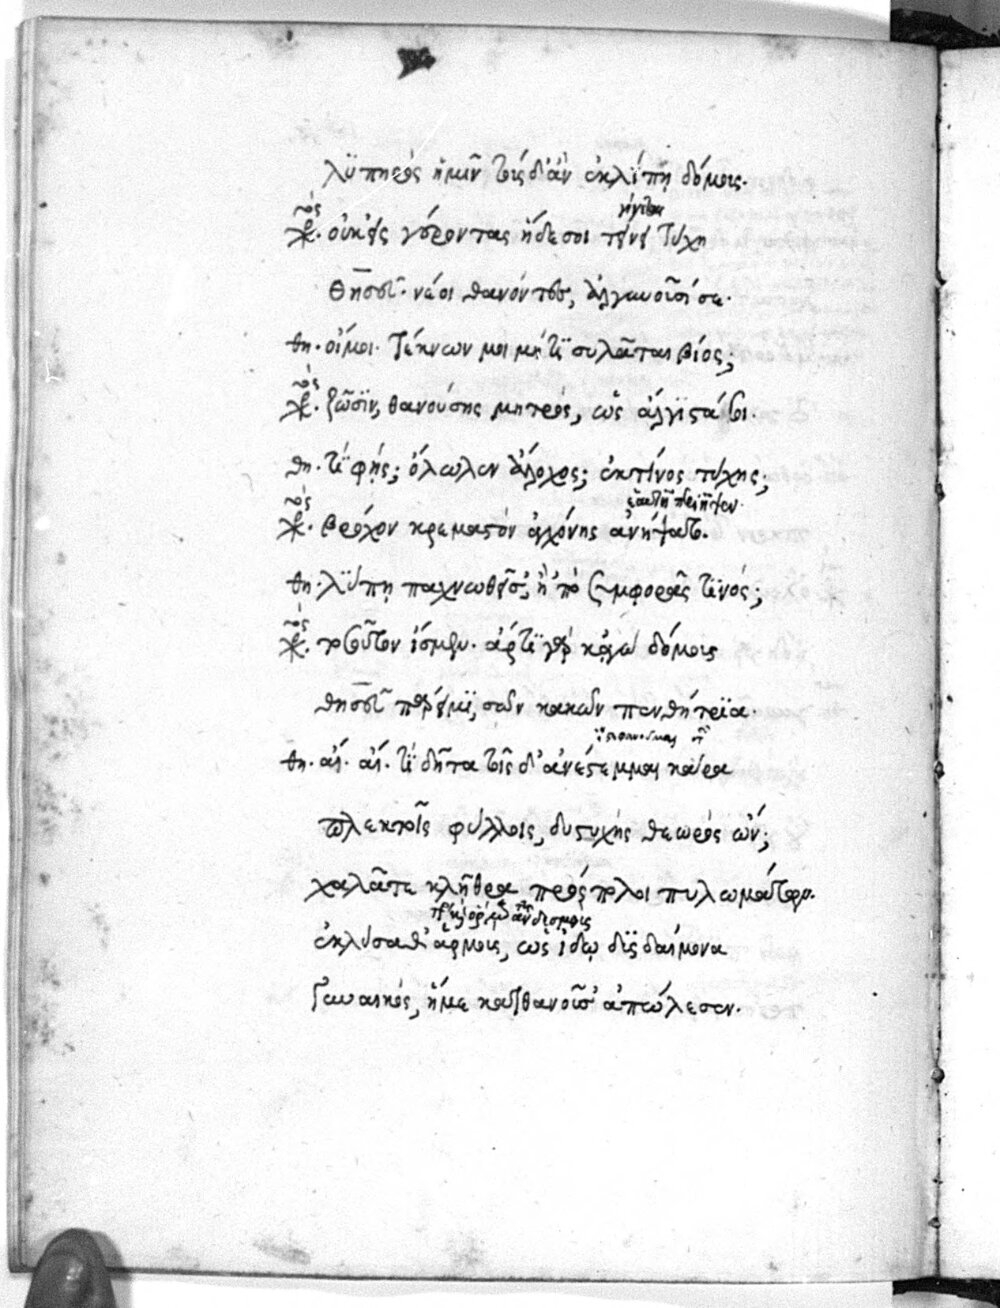 λϋπηρὸς ἡμῖν τούς δ' ἂν ἐκλίπῃ δόμους.
χορός. οὐκ εἰς γέροντας ἥδε σοι τείνει τύχη
θησεῦ. νέοι θανόντες, ἀλγυνοῦσί σε.
θη. οἴμοι. τέκνων μοι μή τι συλᾶται βίος;
χορός. ζῶσϊν, θανούσης μητρὸς, ὡς ἄλγιστά σοι.
θη. τί φής; ὄλωλεν ἄλοχος; ἐκ τίνος τύχης;
χορός. βρόχον κρεμαστὸν ἀγχόνης ἀνήψατο.
θη. λύπῃ παχνωθεῖσ', ἢ 'πὸ συμφορᾶς τινός;
χορός. τοσοῦτον ἴσμεν. ἄρτι γὰρ κᾀγὼ δόμοις
θησεῦ πάρειμϊ, σῶν κακῶν πενθήτρϊα.
θη. αἴ. αἴ. τί δῆτα τοῖς δ' ἀνέστεμμαι κάρα
πλεκτοῖς φύλλοις, δυστυχὴς θεωρὸς ὤν;
χαλᾶτε κλῆθρα πρόσπολοι πυλωμάτων.
ἐκλύσαθ' ἁρμοὺς, ὡς ἴδω δυσδαίμονα
γυναικὸς, ἥ με κατθανοῦσ' ἀπώλεσεν.